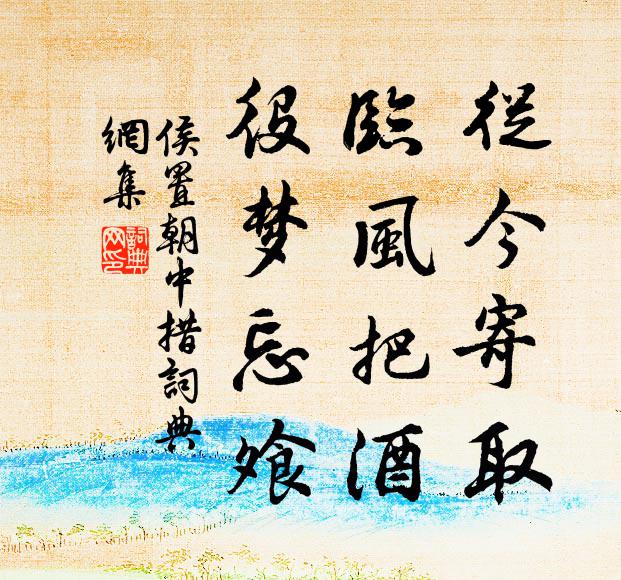 從今寄取
臨風把酒
役梦忘飧
侯置朝中措詞典
網集
詞典網印